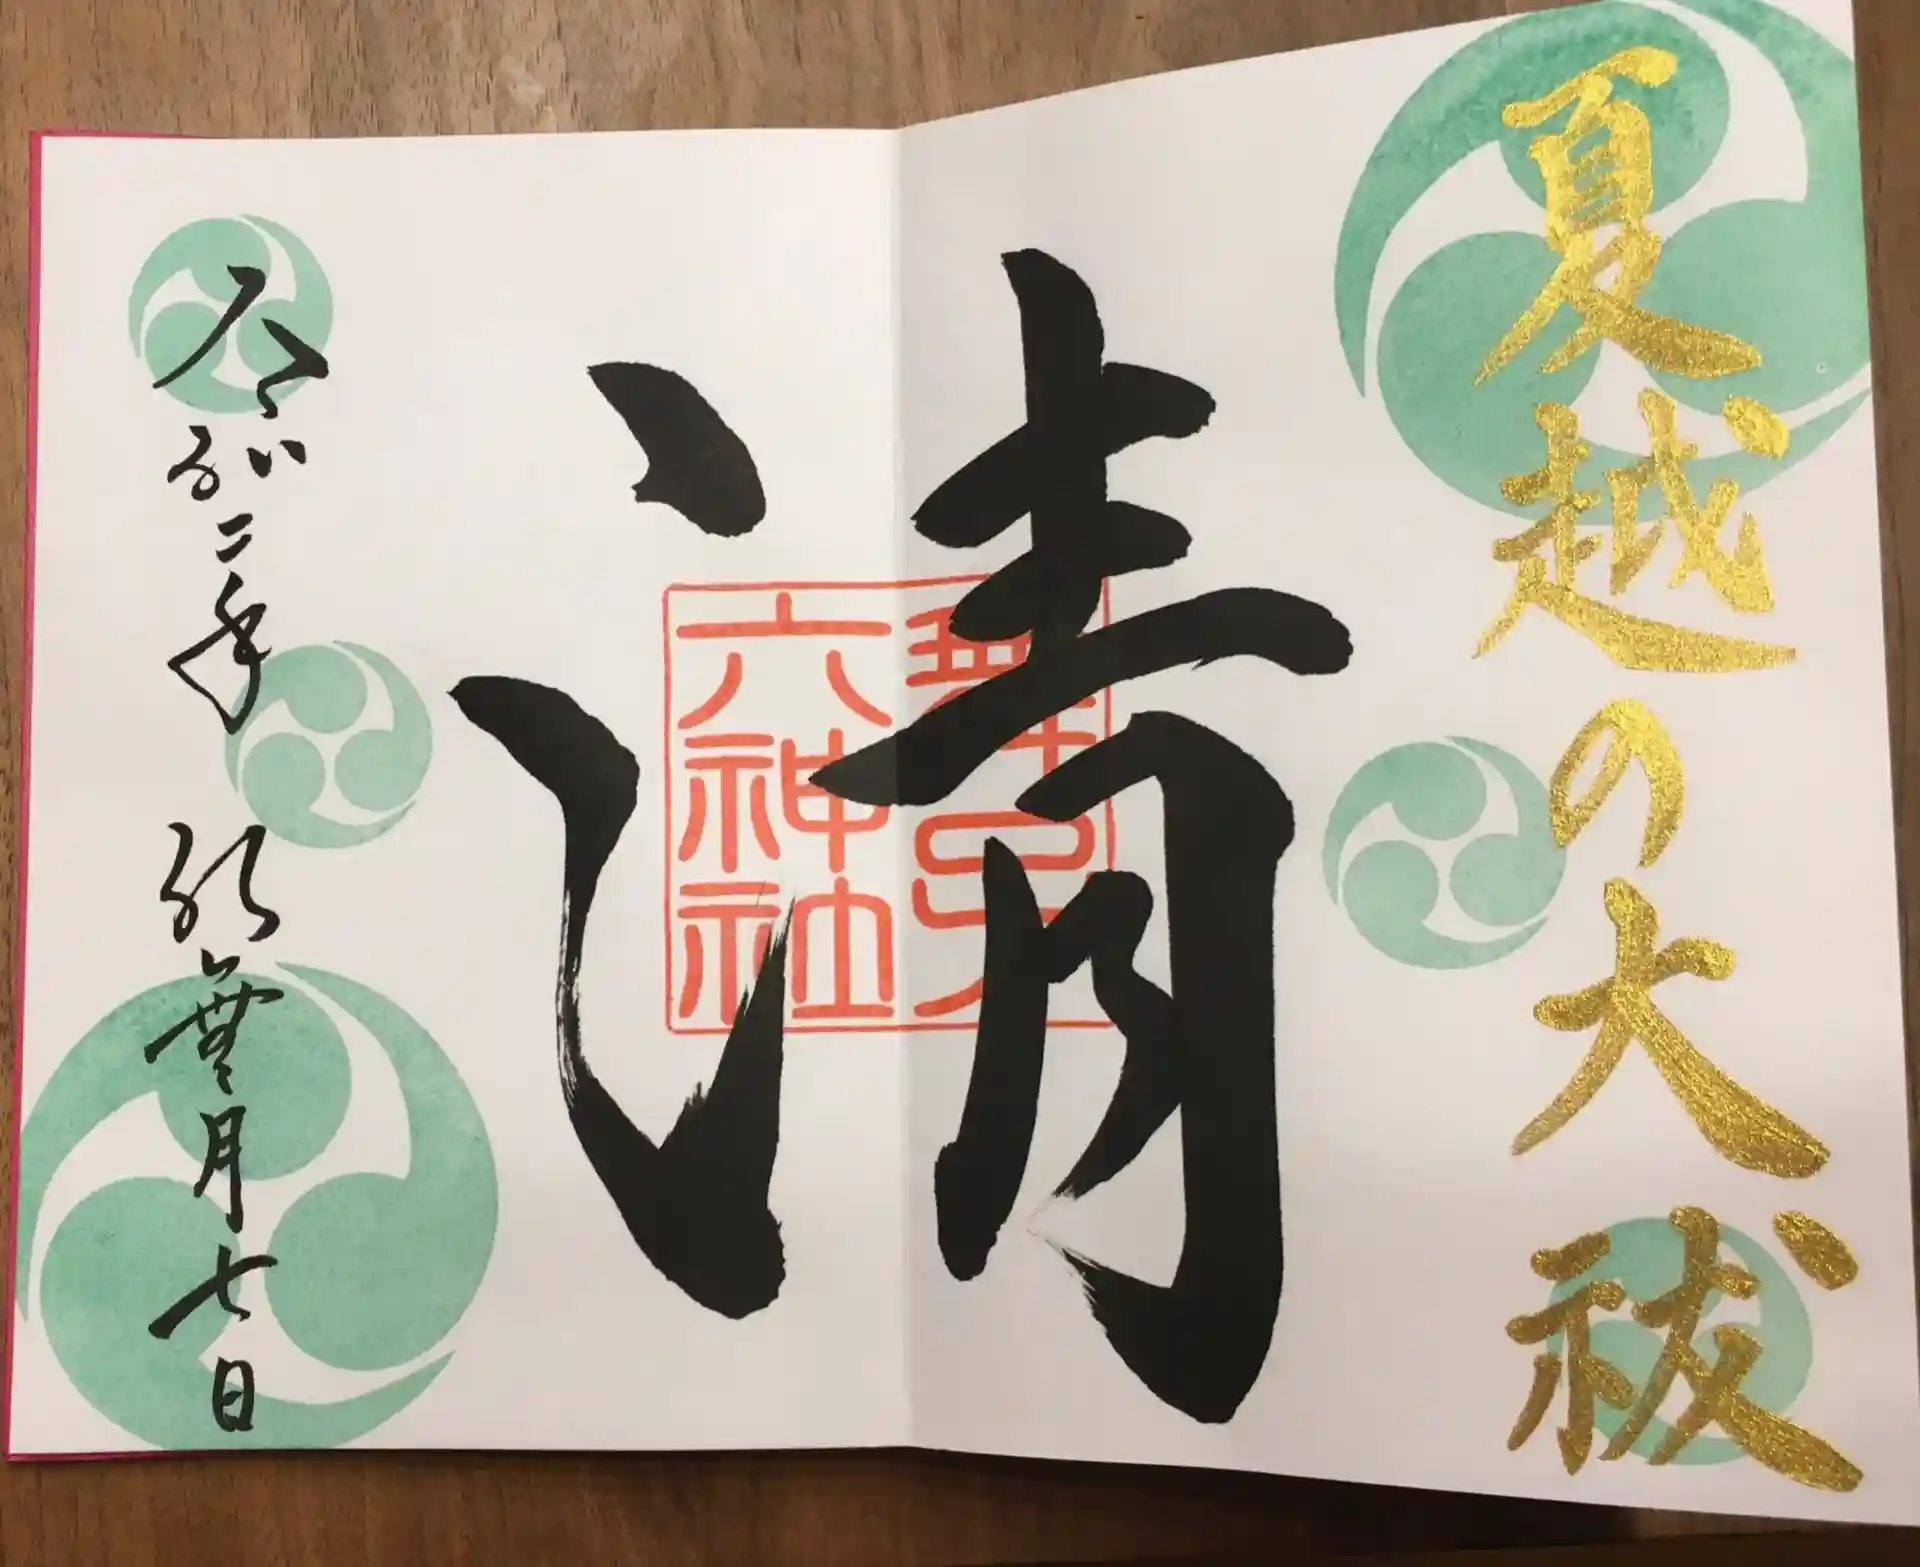 夏越の大祓
清
六神社
令和二年 水無月七日